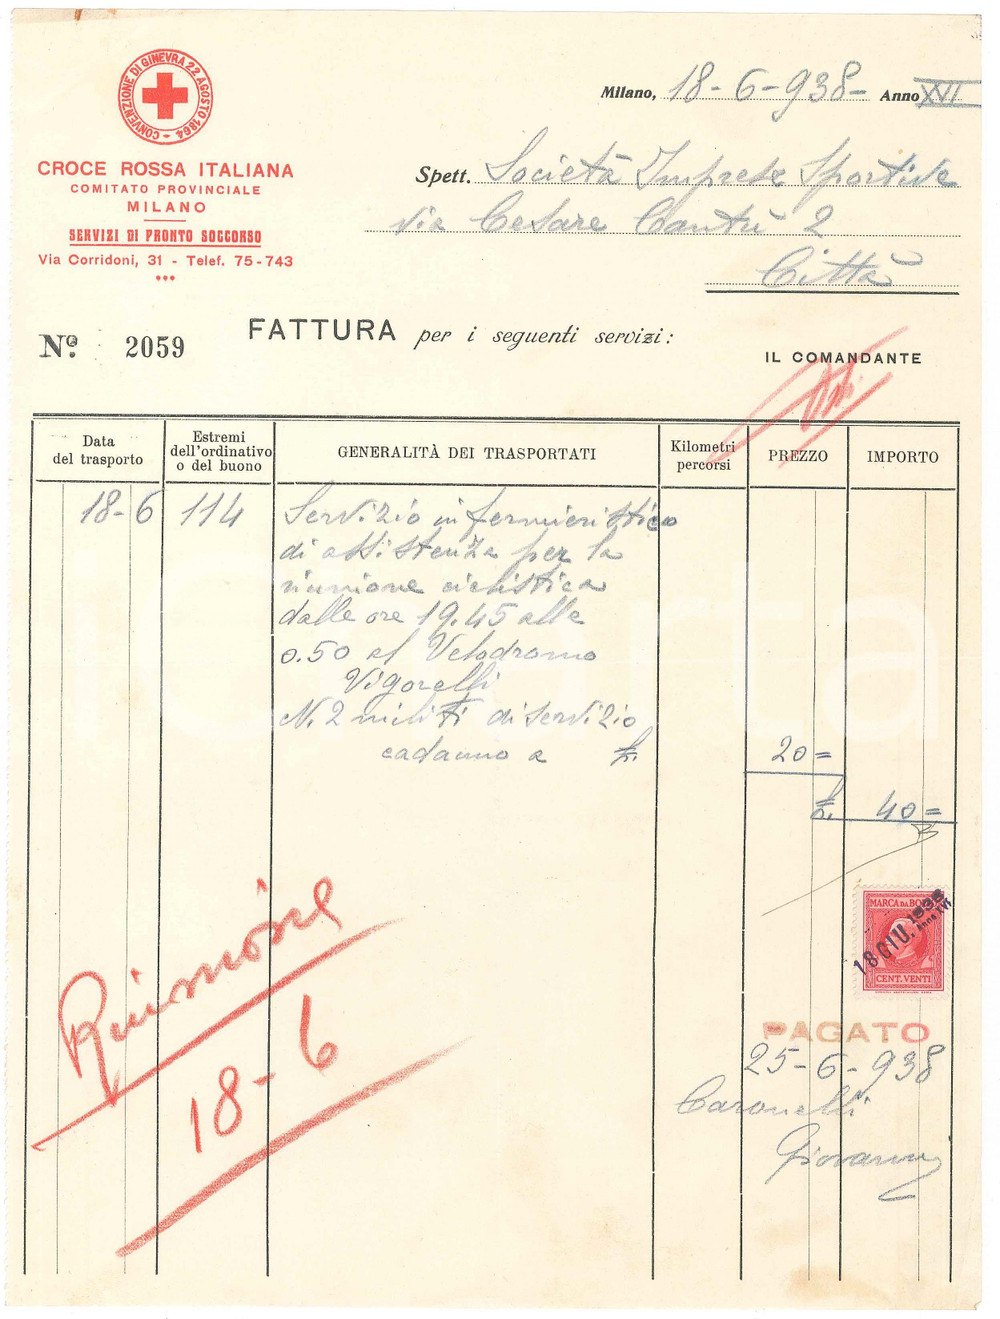 CONVENZIONE DI GINEVRA 22 AGOSTO 1864
CROCE ROSSA ITALIANA
COMITATO PROVINCIALE
MILANO
SERVIZI DI PRONTO SOCCORSO
Via Corridoni, 31 - Telef. 75-743
Milano, 18-6-938- Anno XVI
Spett. Società Imprese Sportive
via Cesare Cantù 2
Città
Nº. 2059
FATTURA per i seguenti servizi:
IL COMANDANTE
Data del trasporto
Estremi dell'ordinativo o del buono
GENERALITÀ DEI TRASPORTATI
Kilometri percorsi
PREZZO
IMPORTO
18-6 114 Servizio infermieristico
di assistenza per la
riunione ciclistica
dalle ore 19.45 alle
0.50 al Velodromo
Vigorelli
N. 2 militi di servizio
cadauno a £. 20=
£. 40=
MARCA DA BOLLO
18 GIU. 1938
Anno XVI
CENT. VENTI
Riunione
18-6
PAGATO
25-6-938
Caronelli
Giovanni